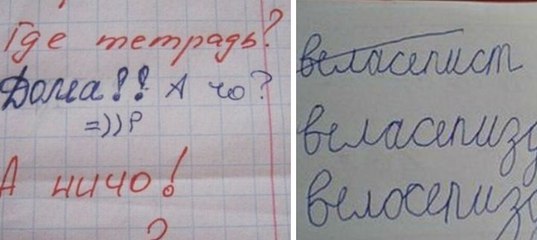 Где тетрадь?
Дома!! А чо?
=))P
А ничо!
?
веласепист
веласепизд
велосепизд